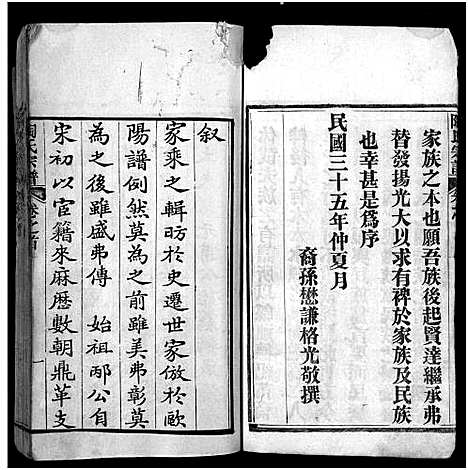 家族之本也願吾族後起賢達繼承弗
替發揚光大以求有裨於家族及民族
也幸甚是爲序
民國三十五年仲夏月
裔孫懋謙格光敬撰
敘
家乘之輯昉於史遷世家倣於歐
陽譜例然莫為之前雖美弗彰莫
為之後雖盛弗傳 始祖邴公自
宋初以官籍來麻歷數朝鼎革支
陶氏宗譜 卷之首 一